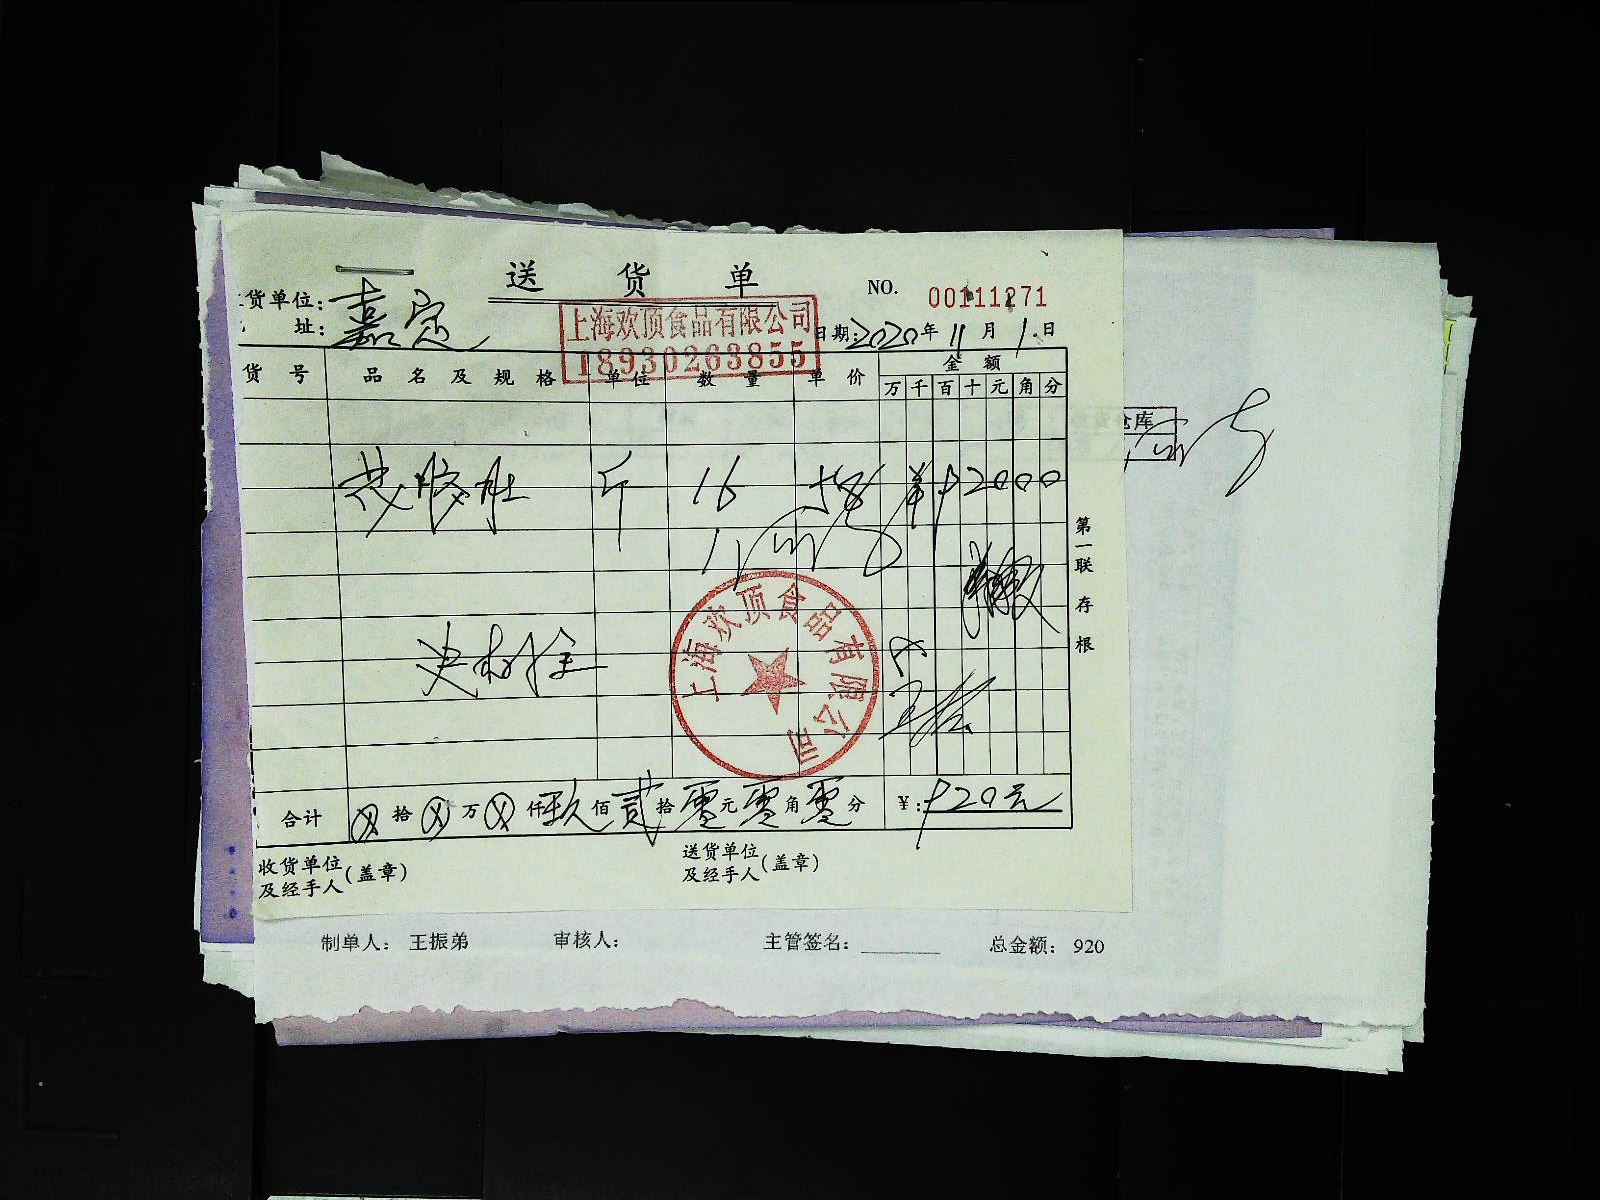 送 货 单
NO. 00111271
货单位: 嘉定
址:
上海欢顶食品有限公司
18930263855
日期: 2020年 11月 1日
货 号 品 名 及 规 格 单位 数 量 单 价 金 额
万 千 百 十 元 角 分
斤 16 92000
第一联 存根
上海欢顶食品有限公司
合计 拾 万 仟 玖 佰 贰 拾 零 元 零 角 零 分 ¥: 920元
收货单位及经手人(盖章) 送货单位及经手人(盖章)
仓库
制单人: 王振弟 审核人: 主管签名: 总金额: 920